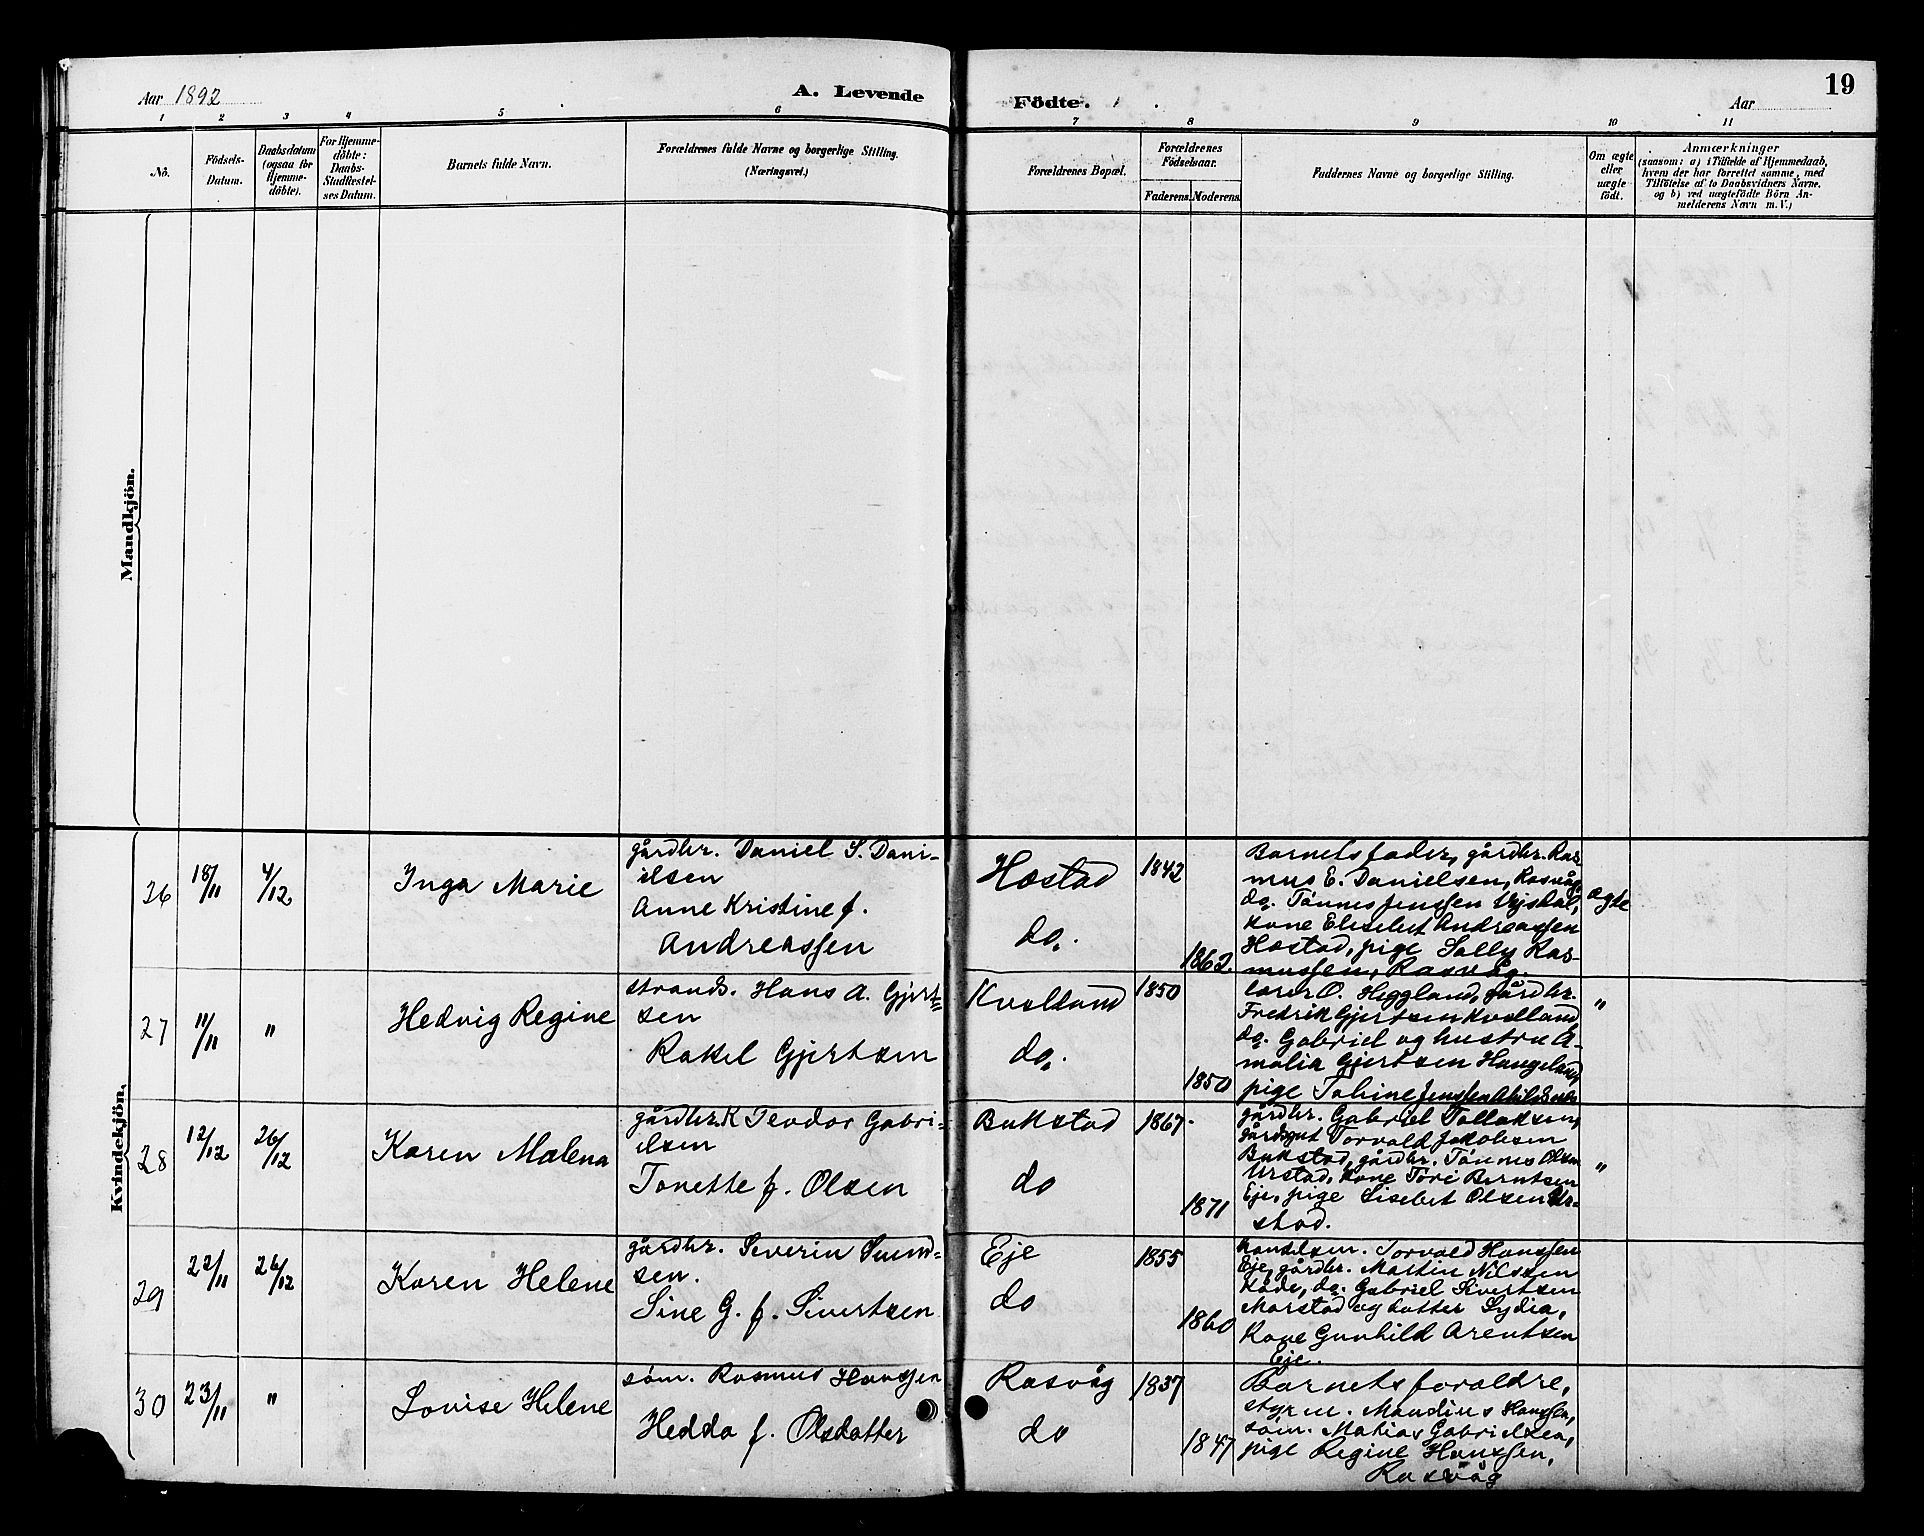 Aar 1892
A. Levende
Födte.
Aar
19
1 2 3 4 5 6 7 8 9 10 11
No.
Födsels-Datum.
Daabsdatum (ogsaa for Hjemme-döbte).
For Hjemme-döbte: Daabs-Stadfæstel-ses Datum.
Barnets fulde Navn.
Forældrenes fulde Navne og borgerlige Stilling. (Næringsvei.)
Forældrenes Bopæl.
Forældrenes Födselsaar.
Faderens.
Moderens.
Faddernes Navne og borgerlige Stilling.
Om ægte eller uægte födt.
Anmærkninger
(saasom: a) i Tilfælde af Hjemmedaab,
hvem der har forrettet samme, med
Tilföielse af to Daabsvidners Navne,
og b) ved uægtefödte Börn An-
melderens Navn m. V.)
Mandkjön.
Kvindekjön.
26 18/11 4/12
Inga Marie
gårdbr. Daniel S. Dani-
elsen
Anne Kristine f.
Andreassen
Hæstad
do.
1842
1862.
Barnets fader, gårdbr. Ras-
mus E. Danielsen, Rasvåg,
do. Tönnes Jenssen
kone Elisebet Andreassen
Hæstad, pige Sally Ras-
mussen, Rasvåg.
ægte
27 11/11 "
Hedvig Regine
strands. Hans A. Gjert-
sen
Rakel Gjertsen
Kvelland
do.
1850
1850
lærer O. Heggland, gårdbr.
Fredrik Gjertsen Kvelland,
do. Gabriel og hustru A-
malia Gjertsen Haugeland,
pige Tobine Jenssen
"
28 12/12 26/12
Karen Malena
gårdbr. K Teodor Gabri-
elsen
Tonette f. Olsen
Bukstad
do
1867.
1871
gårdbr. Gabriel Tollaksen,
gårdgut Torvald Jakobsen
Bukstad, gårdbr. Tönnes Olsen
Urstad, kone Tori Berntsen
Eje, pige Lisebet Olsen Ur-
stad.
"
29 22/11 26/12
Karen Helene
gårdbr. Severin Svend-
sen.
Sine G. f. Sivertsen
Eje
do
1855
1860
Torvald Hanssen
Eje, gårdbr. Martin Nilssen
Kåde, do. Gabriel Sivertsen
Marstad og datter Lydia,
kone Gunhild Arentsen
Eje.
30 23/11 "
Lovise Helene
söm. Rasmus Hanssen
Hedda f. Olsdatter
Rasvåg
do
1837
1847
Barnets foraldre,
styrm. Mandius Hanssen,
söm. Matias Gabrielsen,
pige Regine Hanssen,
Rasvåg